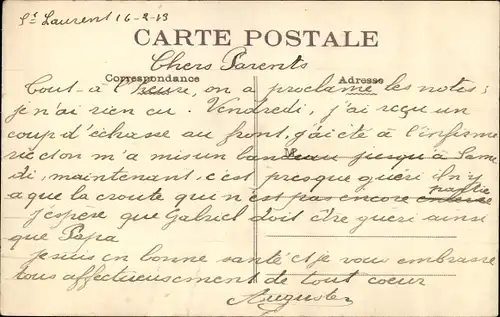 St Laurent 16-2-13
CARTE POSTALE
Chers Parents
Correspondance
Adresse
Tout-à l'heure, on a proclamé les notes;
je n'ai rien eu. Vendredi, j'ai reçu un
coup d'échasse au front, j'ai été à l'infirme
rie et on m'a mis un bandeau jusqu'à Same
M
di, maintenant, c'est presque guéri il n'y
a que la croute qui n'est pas encore enlevée partie
j'espère que Gabriel doit être guéri ainsi
que Papa
Je suis en bonne santé et je vous embrasse
tous affectueusement de tout coeur
Auguste